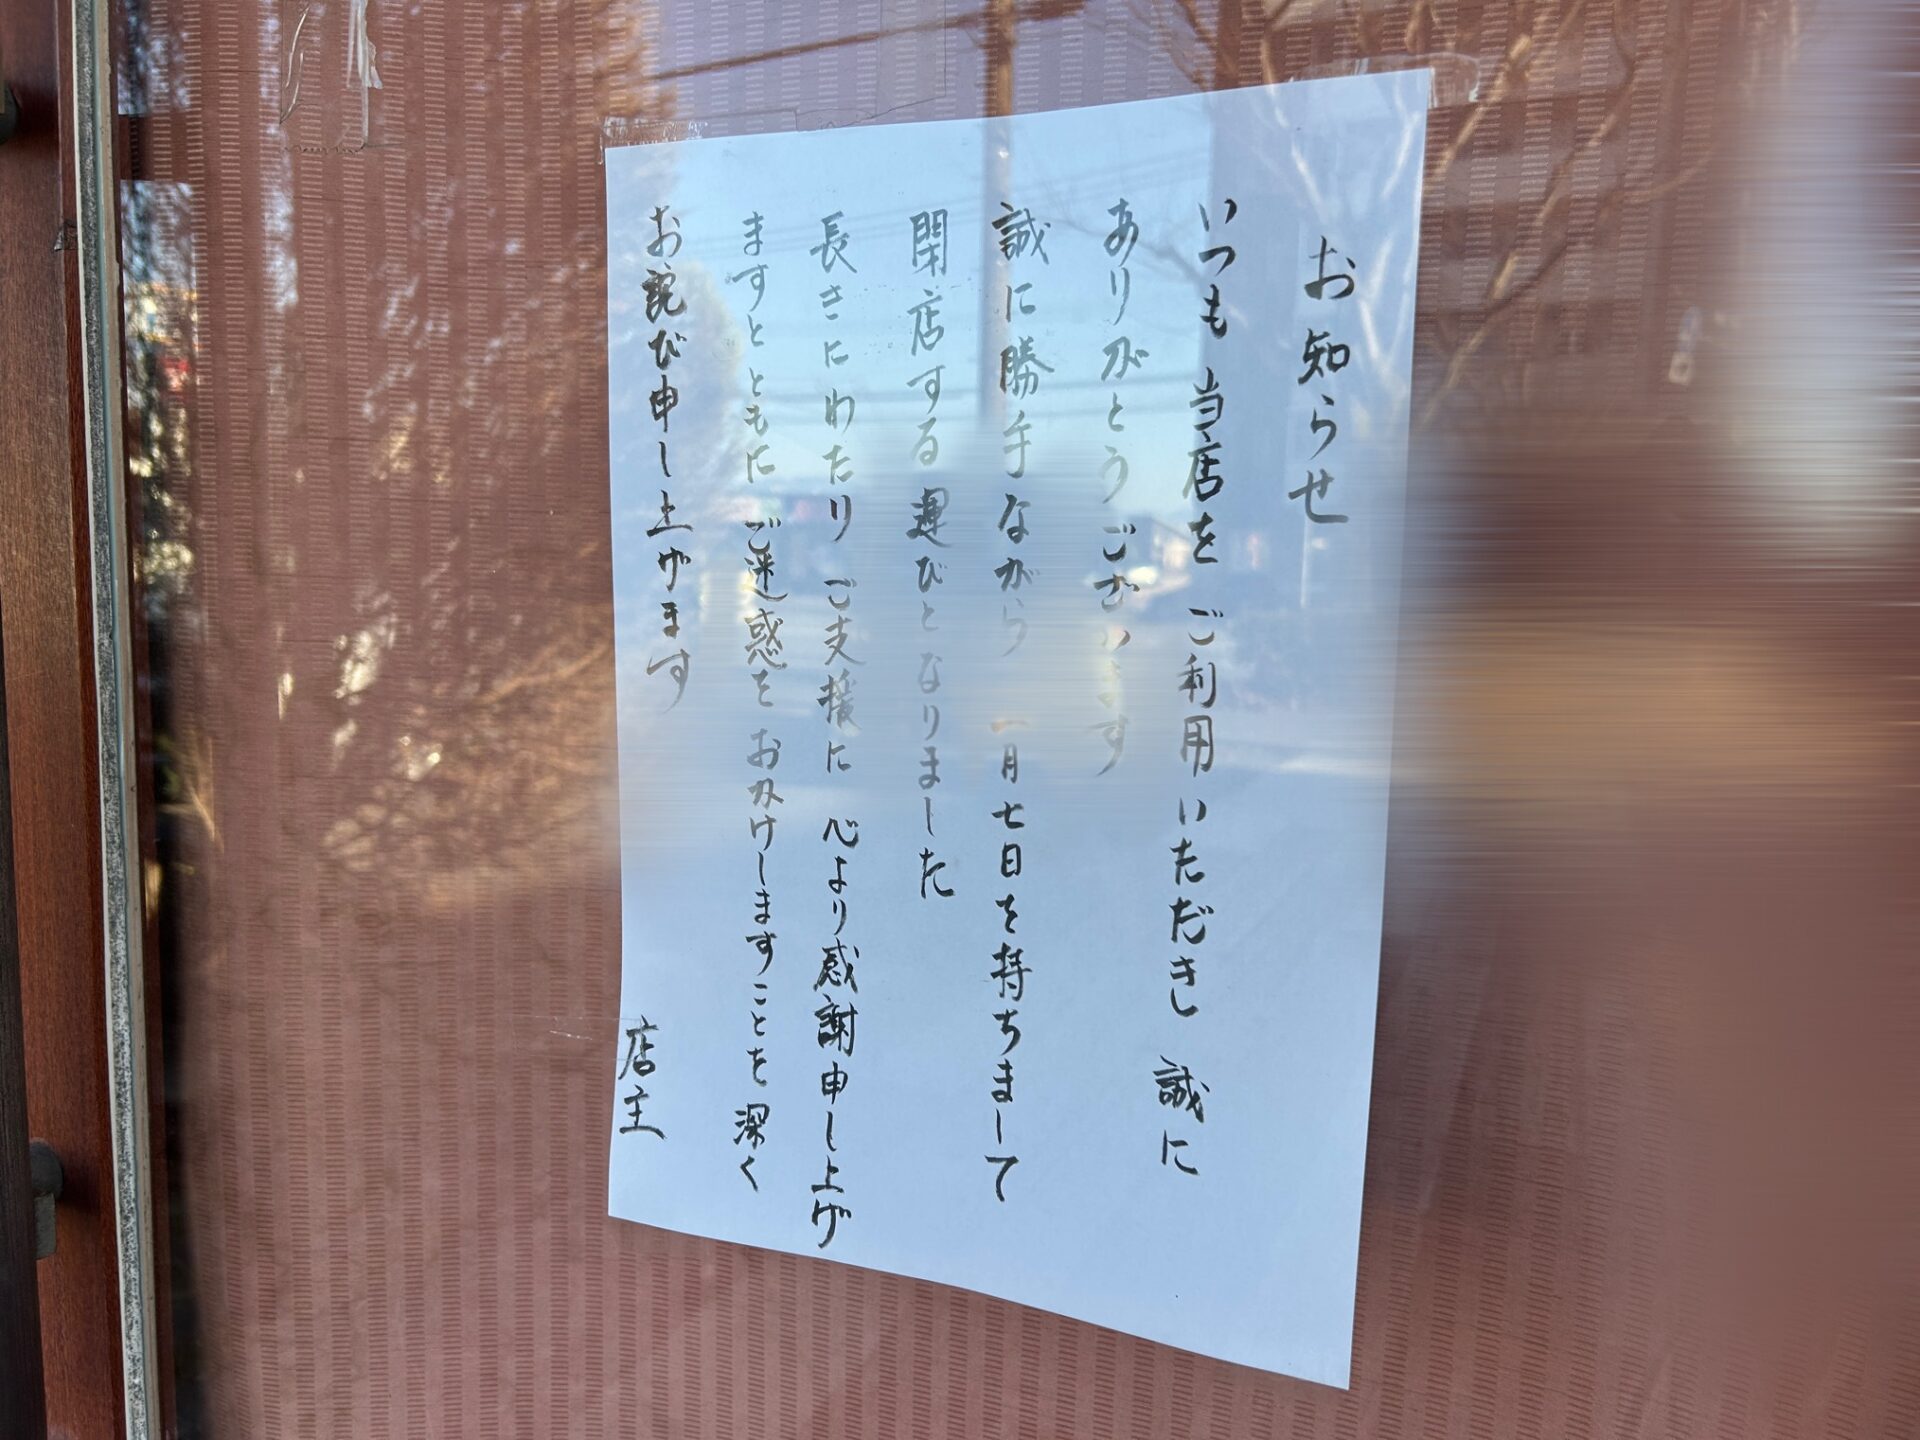 お知らせ
いつも当店を ご利用いただき 誠に
ありがとうございます
誠に勝手ながら 一月七日を持ちまして
閉店する運びとなりました
長きにわたり ご支援に 心より感謝申し上げ
ますとともに ご迷惑を おかけしますことを 深く
お詫び申し上げます
店主